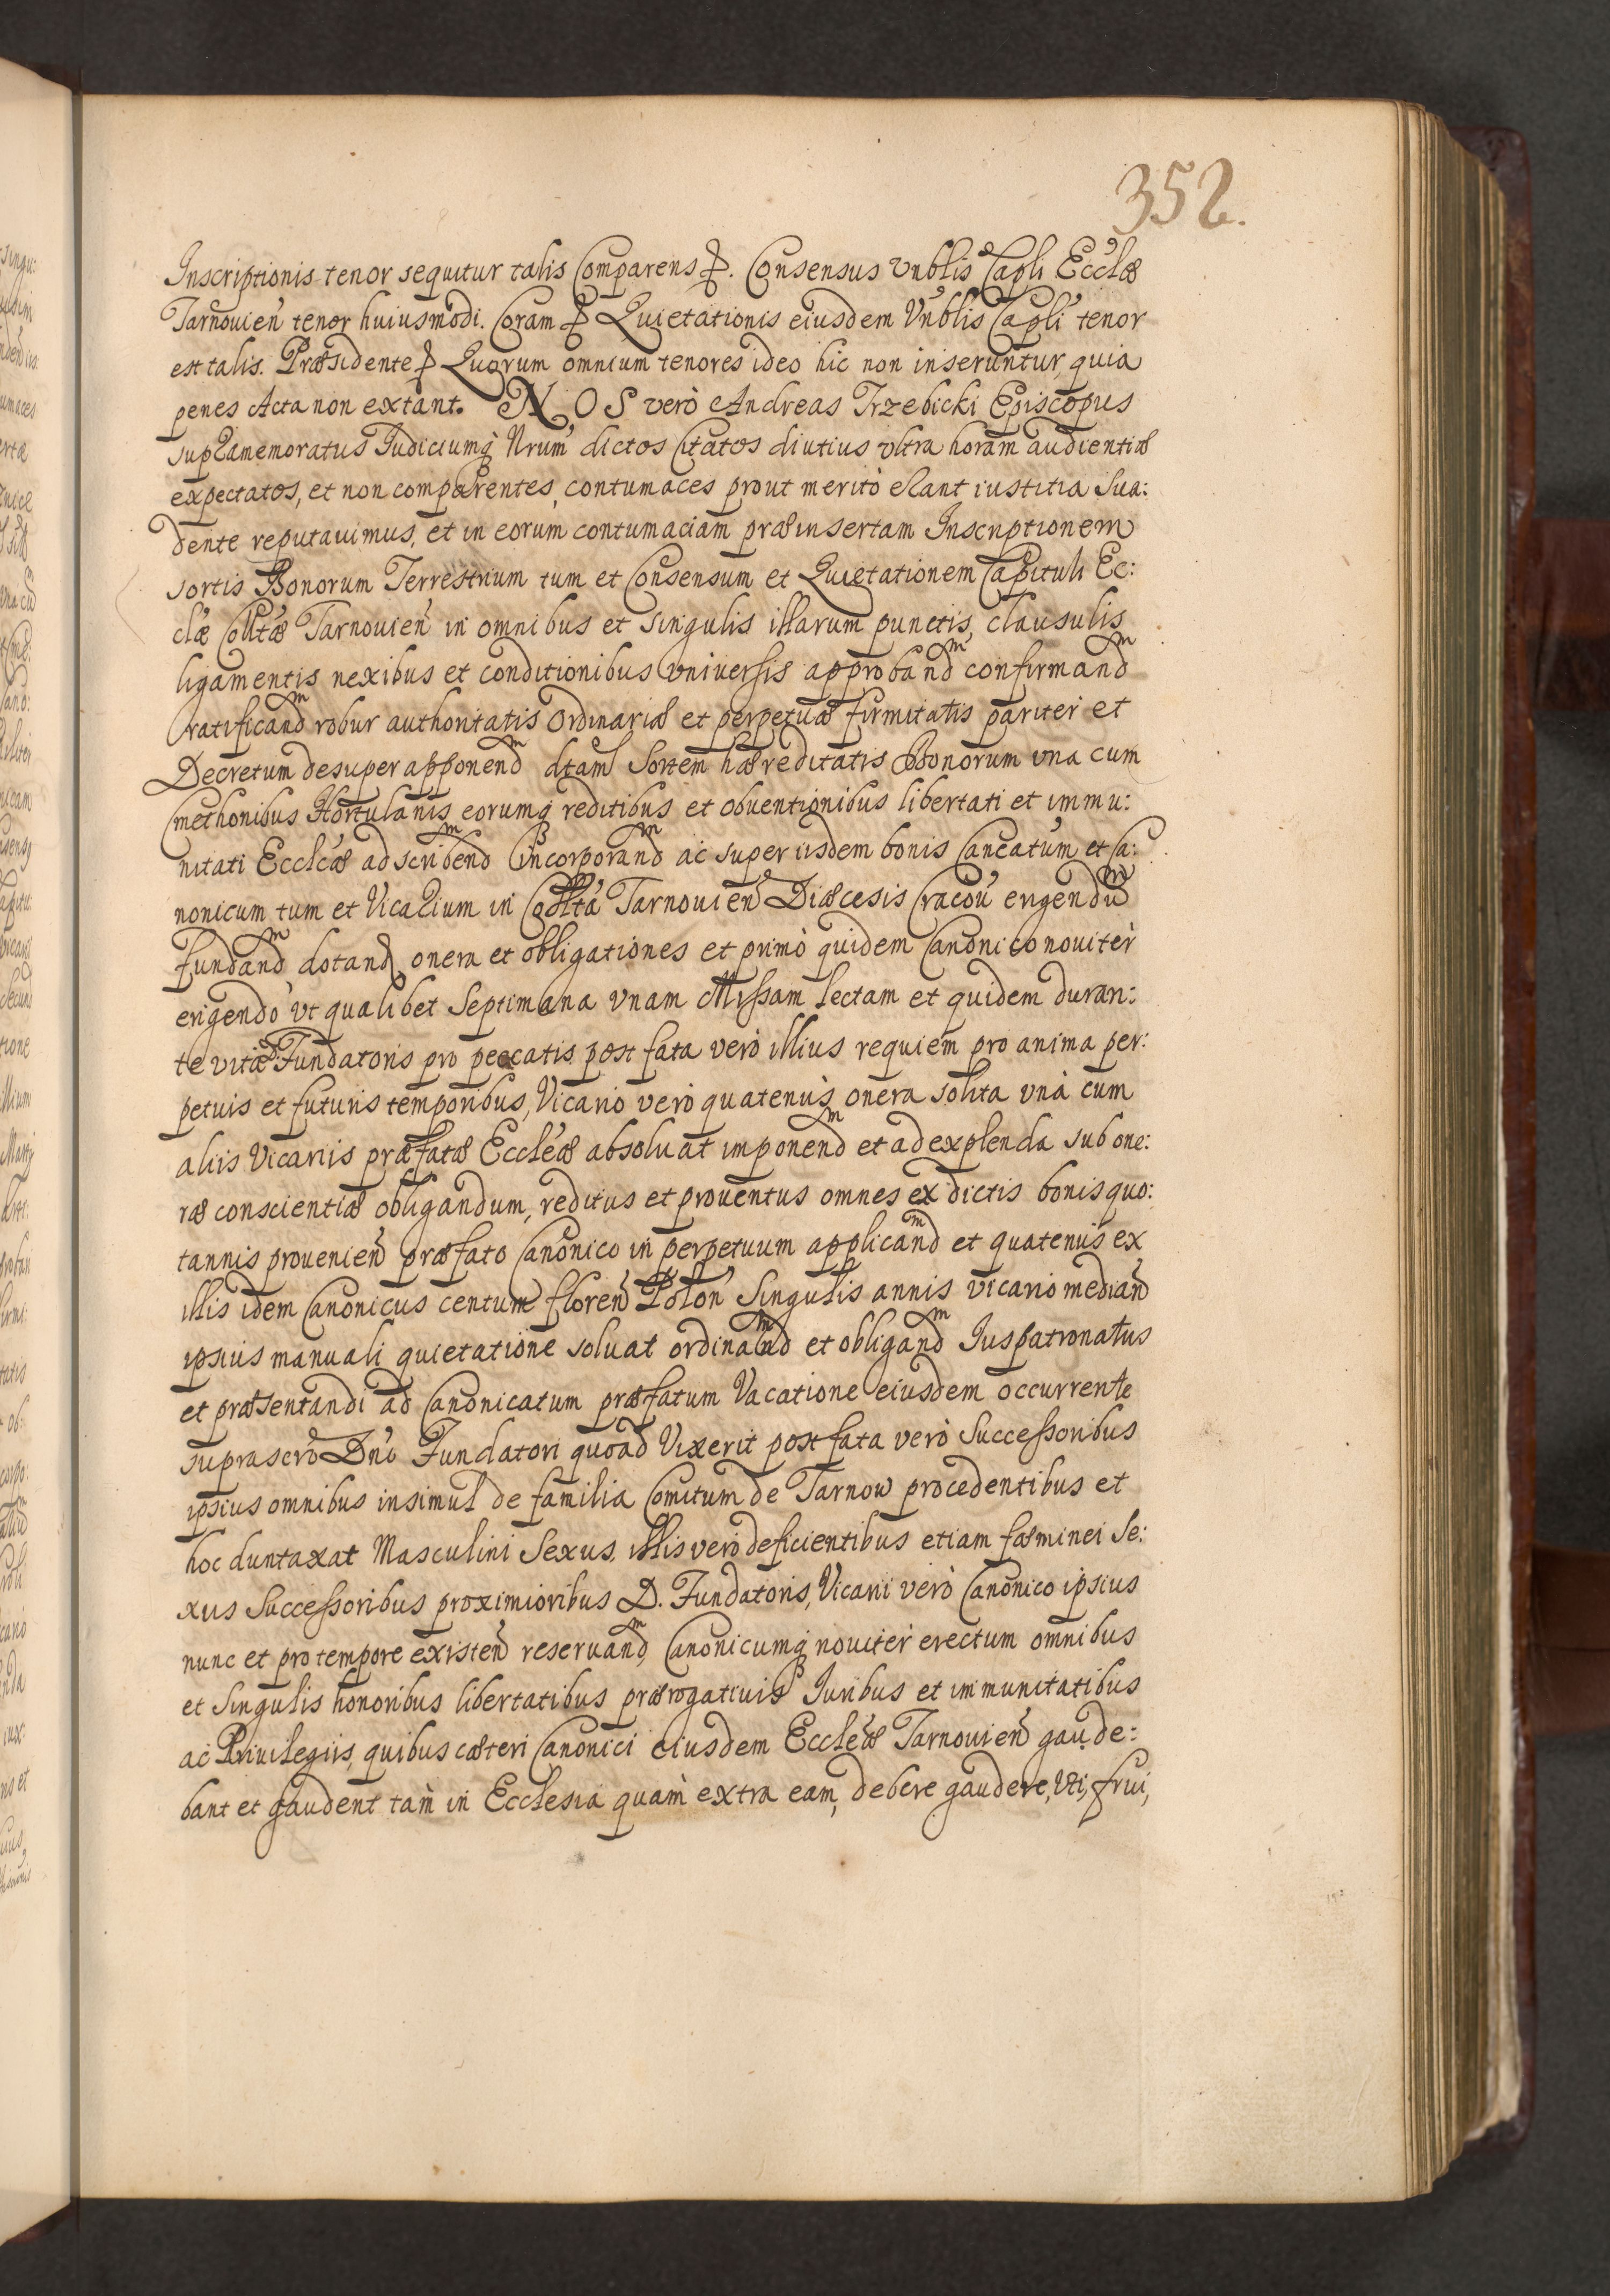 352.
Inscriptionis tenor sequitur talis Comparens &. Consensus Vnblis Capli Ecclæ
Tarnouien tenor huiusmodi. Coram & Quietationis eiusdem Vnblis Capli tenor
est talis. Præsidente & Quorum omnium tenores ideo hic non inseruntur, quia
penes Acta non extant. NOS verò Andreas Trzebicki Episcopus
supramemoratus Judiciumq́ Nrum dictos Citatos diutius vltra horam audientiæ
expectatos, et non comparentes, contumaces prout meritò erant iustitia sua:
dente reputauimus, et in eorum contumaciam præinsertam Inscriptionem
sortis Bonorum Terrestrium tum et Consensum et Quietationem Capituli Ec:
clæ Colltæ Tarnouien in omnibus et singulis illarum punctis, clausulis
ligamentis nexibus et conditionibus vniuersis approband͞m confirmand͞m
ratificand͞m robur authoritatis Ordinariæ et perpetuæ firmitatis pariter et
Decretum desuper apponend͞m dtam Sortem hæreditatis Bonorum vna cum
Cmethonibus Hortulanis eorumq́ reditibus et obuentionibus libertati et immu:
nitati Eccleæ adscribend͞m incorporand͞m ac super iisdem bonis Cancatum et Ca:
nonicum tum et Vicarium in Collta Tarnouien Diæcesis Cracou erigendu͞m
fundand͞m dotand, onera et obligationes et primò quidem Canonico nouiter
erigendo vt qualibet Septimana vnam Missam lectam et quidem duran:
te vita Fundatoris pro peccatis post fata verò illius requiem pro anima per:
petuis et futuris temporibus, Vicario verò quatenùs onera solita vnà cum
aliis Vicariis præfatæ Eccleæ absoluat imponend͞m et ad explenda sub one:
ræ conscientiæ obligandum, reditus et prouentus omnes ex dictis bonis quo:
tannis prouenien præfato Canonico in perpetuum applicand͞m et quatenus ex
illis idem Canonicus centum floren Polon Singulis annis vicario median
ipsius manuali quietatione soluat ordinand͞m et obligand͞m Juspatronatus
et præsentandi ad Canonicatum præfatum Vacatione eiusdem occurrente
suprascro Dno Fundatori quoad Vixerit post fata verò Successoribus
ipsius omnibus insimul de familia Comitum de Tarnow procedentibus et
hoc duntaxat Masculini Sexus, illis verò deficientibus etiam fæminei Se:
xus Successoribus proximioribus D. Fundatoris, Vicarii verò Canonico ipsius
nunc et pro tempore existen reseruand͞m, Canonicumq́ nouiter erectum omnibus
et singulis honoribus libertatibus prærogatiuis Juribus et immunitatibus
ac Priuilegiis, quibus cæteri Canonici eiusdem Eccleæ Tarnouien gaude:
bant et gaudent tàm in Ecclesia quàm extra eam, debere gaudere, Vti, frui,